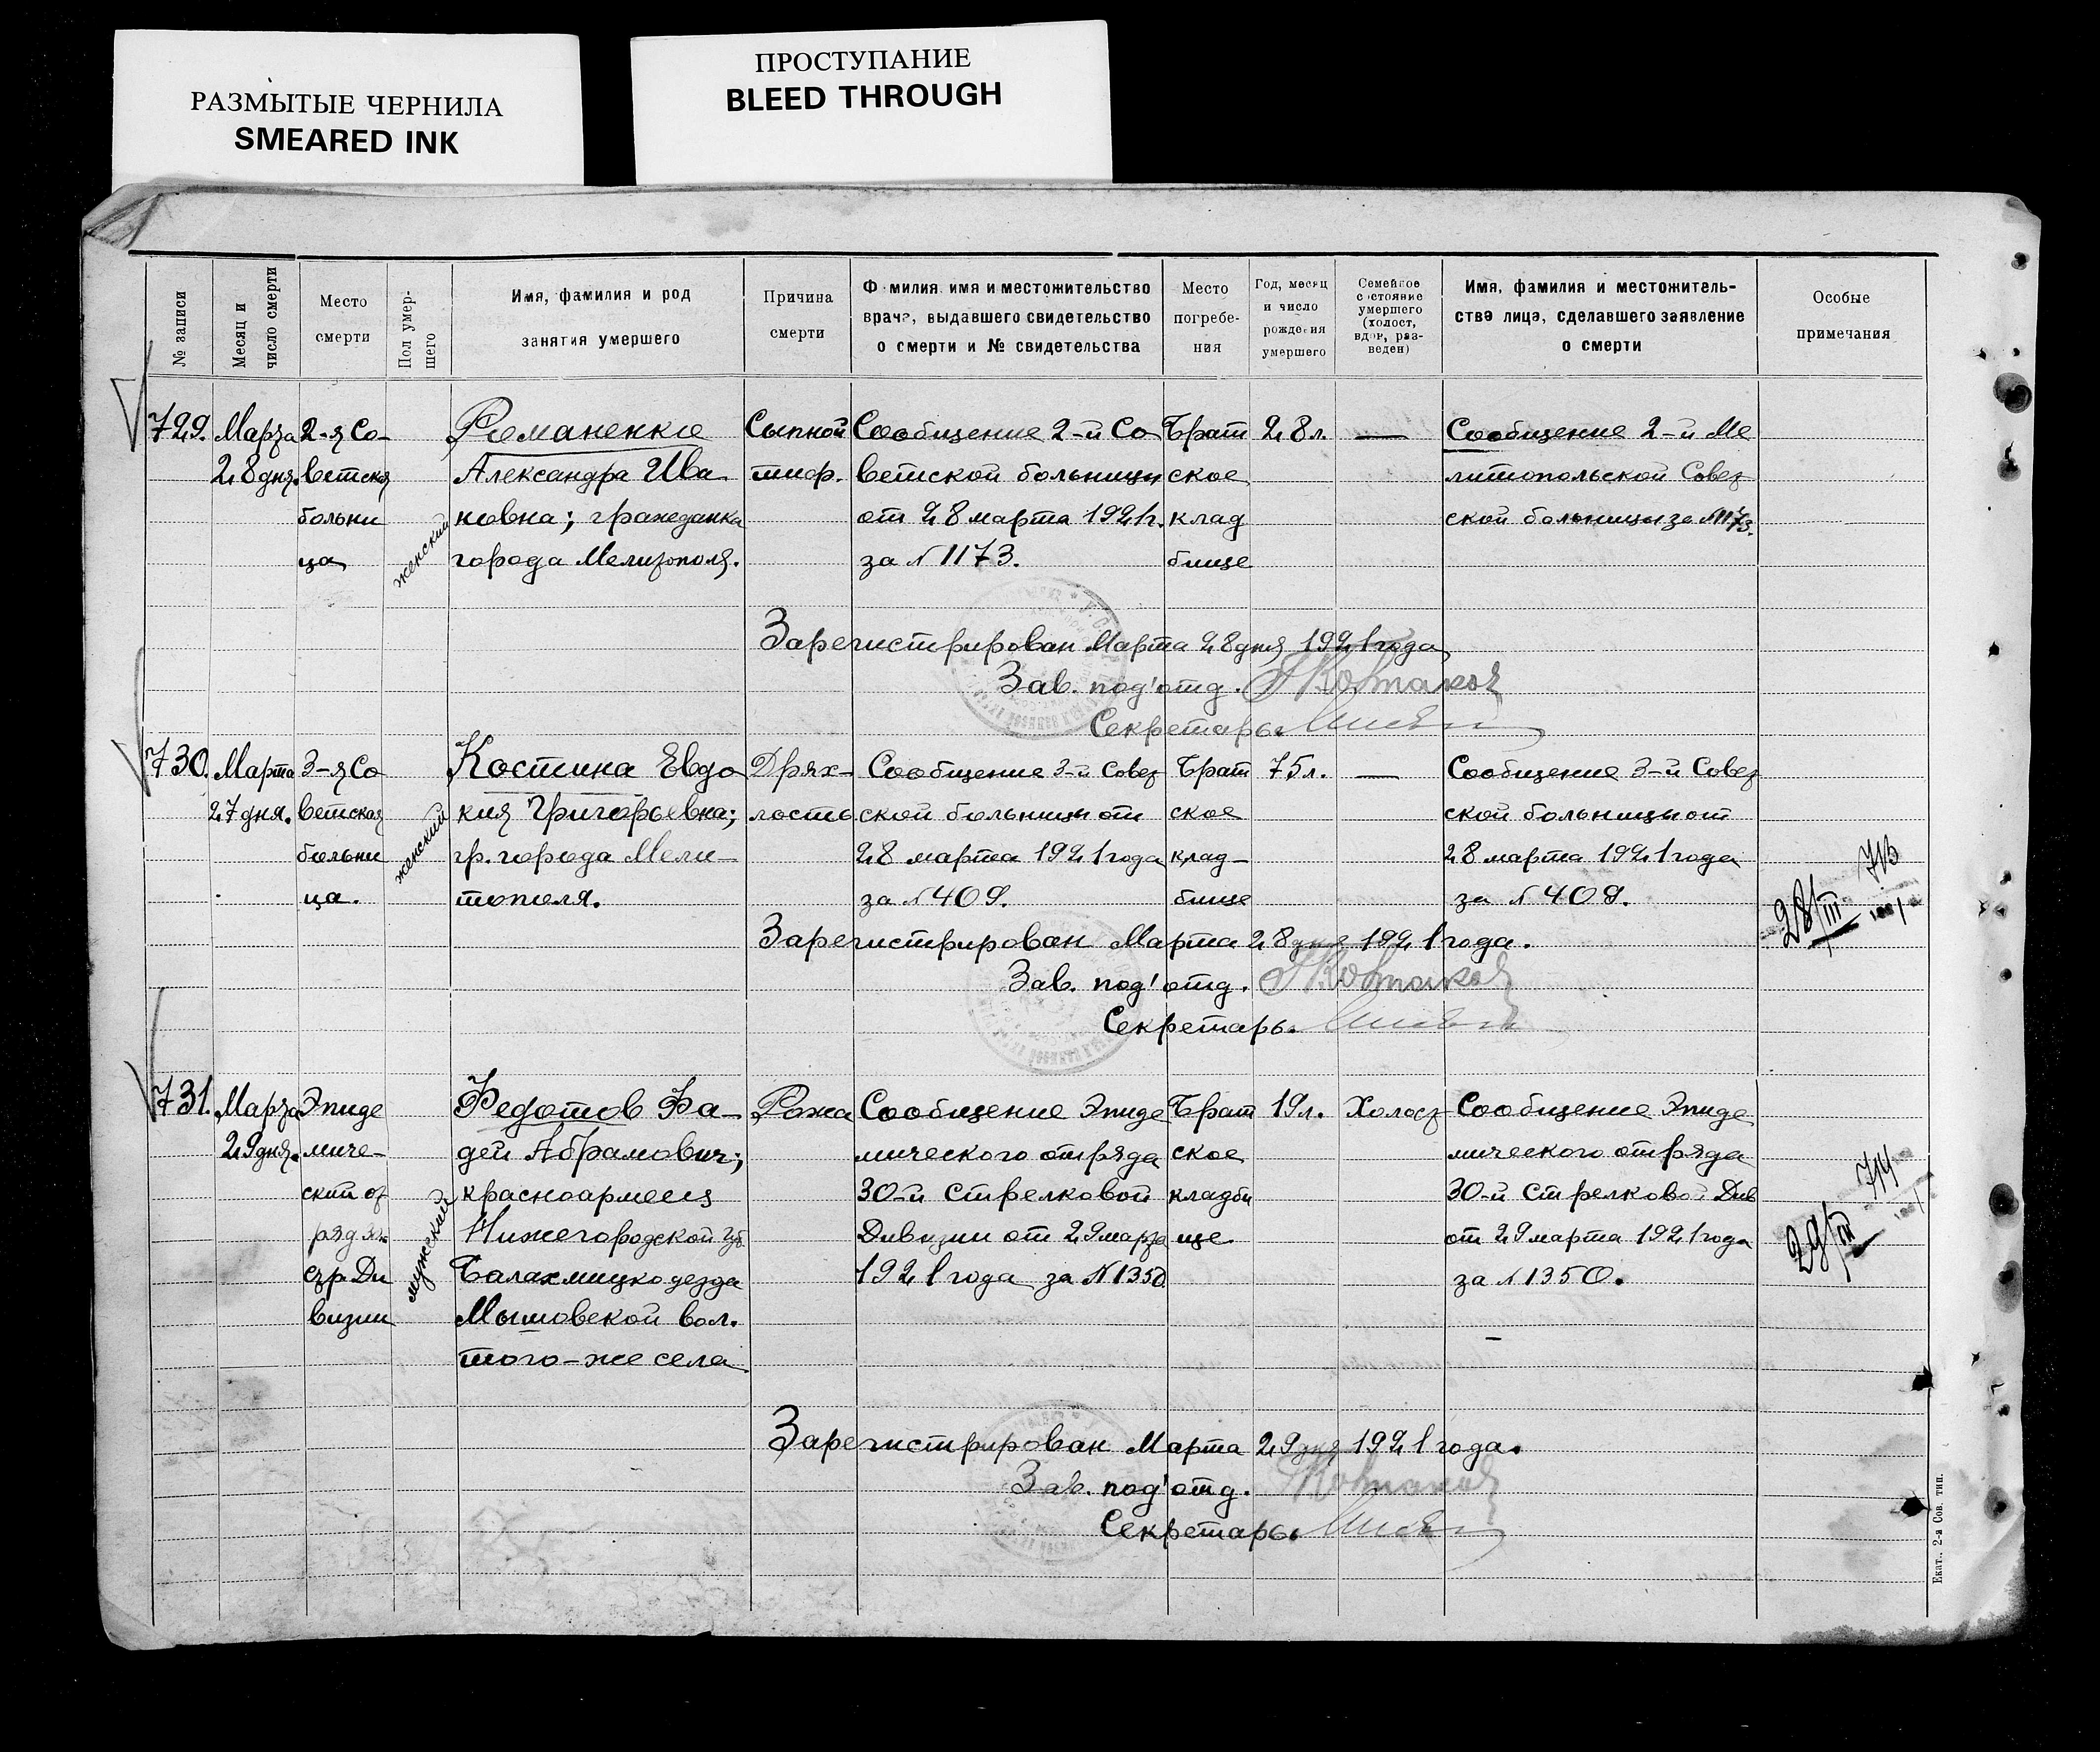 РАЗМЫТЫЕ ЧЕРНИЛА
SMEARED INK
ПРОСТУПАНИЕ
BLEED THROUGH
№ записи
Месяц и
число смерти
Место
смерти
Пол умер-
шего
Имя, фамилия и род
занятия умершего
Причина
смерти
Ф милия имя и местожительство
врача, выдавшего свидетельство
о смерти и № свидетельства
Место
погребе-
ния
Год, месяц
и число
рождения
умершего
Семейное
состояние
умершего
(холост,
вдов, раз-
веден)
Имя, фамилия и местожитель-
ство лица, сделавшего заявление
о смерти
Особые
примечания
729.
Марта
28 дня.
2-я Со-
ветская
больни
ца
женский
Романенко
Александра Ива
новна; гражданка
города Мелитополя.
Сыпной
тиф.
Сообщение 2-й Со
ветской больницы
от 28 марта 1921г.
за № 1173.
Брат
ское
клад
бище
28 л.
—
Сообщение 2-й Ме
литопольской Совет
ской больницы за № 1173.
Зарегистрирован Марта 28 дня 1921 года
Зав. под'отд.
Секретарь
730.
Марта
27 дня.
3-я Со
ветская
больни
ца.
женский
Костина Евдо
кия Григорьевна;
гр. города Мели-
тополя.
Дрях-
лость
Сообщение 3-й Совет
ской больницы от
28 марта 1921 года
за № 409.
Брат
ское
клад-
бище
75 л.
—
Сообщение 3-й Совет
ской больницы от
28 марта 1921 года
за № 409.
28/III
713
Зарегистрирован Марта 28 дня 1921 года.
Зав. под'отд.
Секретарь.
731.
Марта
29 дня.
Эпиде
миче-
ский от
ряд 30й
стр. Ди
визии
мужской
Федотов Фа-
дей Абрамович;
красноармеец
Нижегородской губ.
Балахницко уезда
Мышовской вол.
того-же села
Рожа
Сообщение Эпиде
мического отряда
30-й Стрелковой
Дивизии от 29 марта
1921 года за № 1350
Брат
ское
кладби
ще.
19 л.
Холост
Сообщение Эпиде
мического отряда
30-й Стрелковой Див
от 29 марта 1921 года
за № 1350.
29/III
714
Зарегистрирован Марта 29 дня 1921 года.
Зав. под'отд.
Секретарь.
Екат., 2-а Сов. тип.